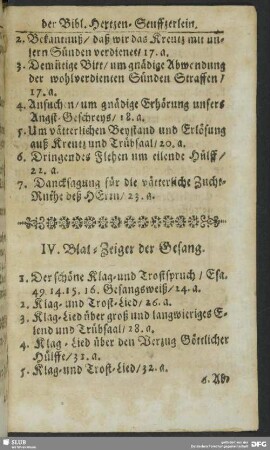 der Bibl. Hertzen-Seuffzerlein.
2. Bekantnuß / daß wir das Kreutz mit un-
sern Sünden verdienet / 17. a.
3. Demütige Bitt / um gnädige Abwendung
der wohlverdienten Sünden Straffen /
17. a.
4. Ansuchen / um gnädige Erhörung unsers
Angst-Geschreys / 18. a.
5. Um vätterlichen Beystand und Erlösung
auß Kreutz und Trübsaal / 20. a.
6. Dringendes Flehen um eilende Hülff /
22. a.
7. Dancksagung für die vätterliche Zucht-
Ruthe deß HErrn / 23. a.
IV. Blat-Zeiger der Gesang.
1. Der schöne Klag-und Trostspruch / Esa.
49. 14. 15. 16. Gesangsweiß / 24. a.
2. Klag-und Trost-Lied / 26. a.
3. Klag-Lied über groß und langwieriges E-
lend und Trübsaal / 28. a.
4. Klag-Lied über den Verzug Göttlicher
Hülffe / 31. a.
5. Klag-und Trost-Lied / 32. a.
6. Ab-
SLUB